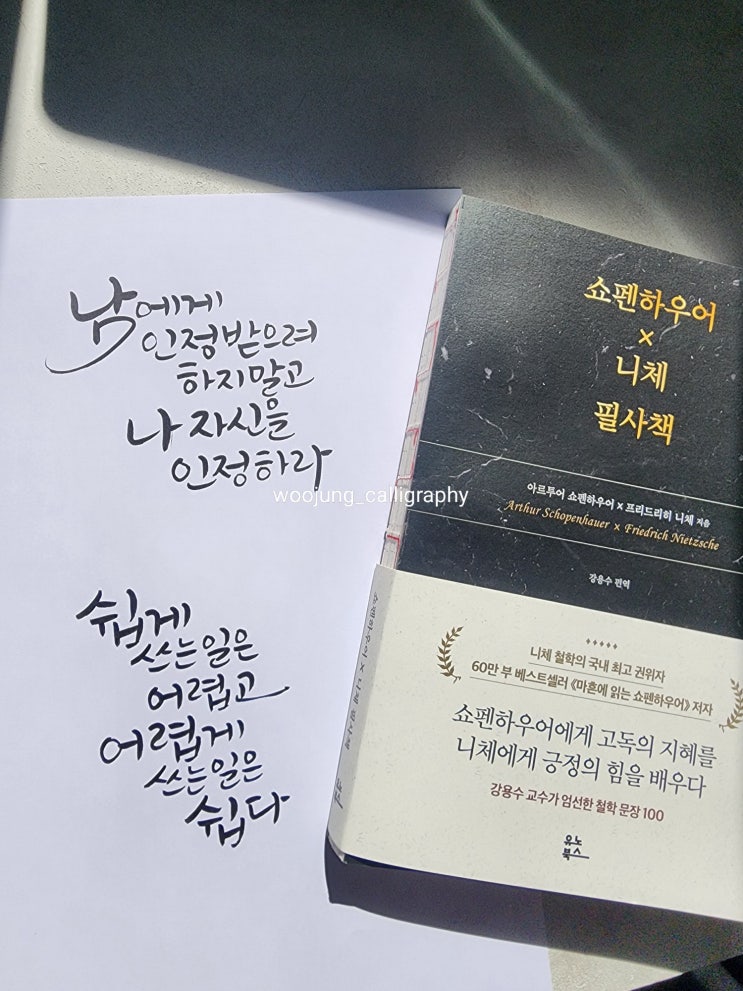 남에게
인정받으려
하지말고
나 자신을
인정하라
woojung_calligraphy
쉽게
쓰는일은
어렵고
어렵게
쓰는일은
쉽다
쇼펜하우어
×
니체
필사책
아르투어 쇼펜하우어 × 프리드리히 니체 지음
Arthur Schopenhauer × Friedrich Nietzsche
강용수 편역
니체 철학의 국내 최고 권위자
60만 부 베스트셀러 《마흔에 읽는 쇼펜하우어》 저자
쇼펜하우어에게 고독의 지혜를
니체에게 긍정의 힘을 배우다
강용수 교수가 엄선한 철학 문장 100
유노
북스
쇼펜하우어 × 니체 필사책